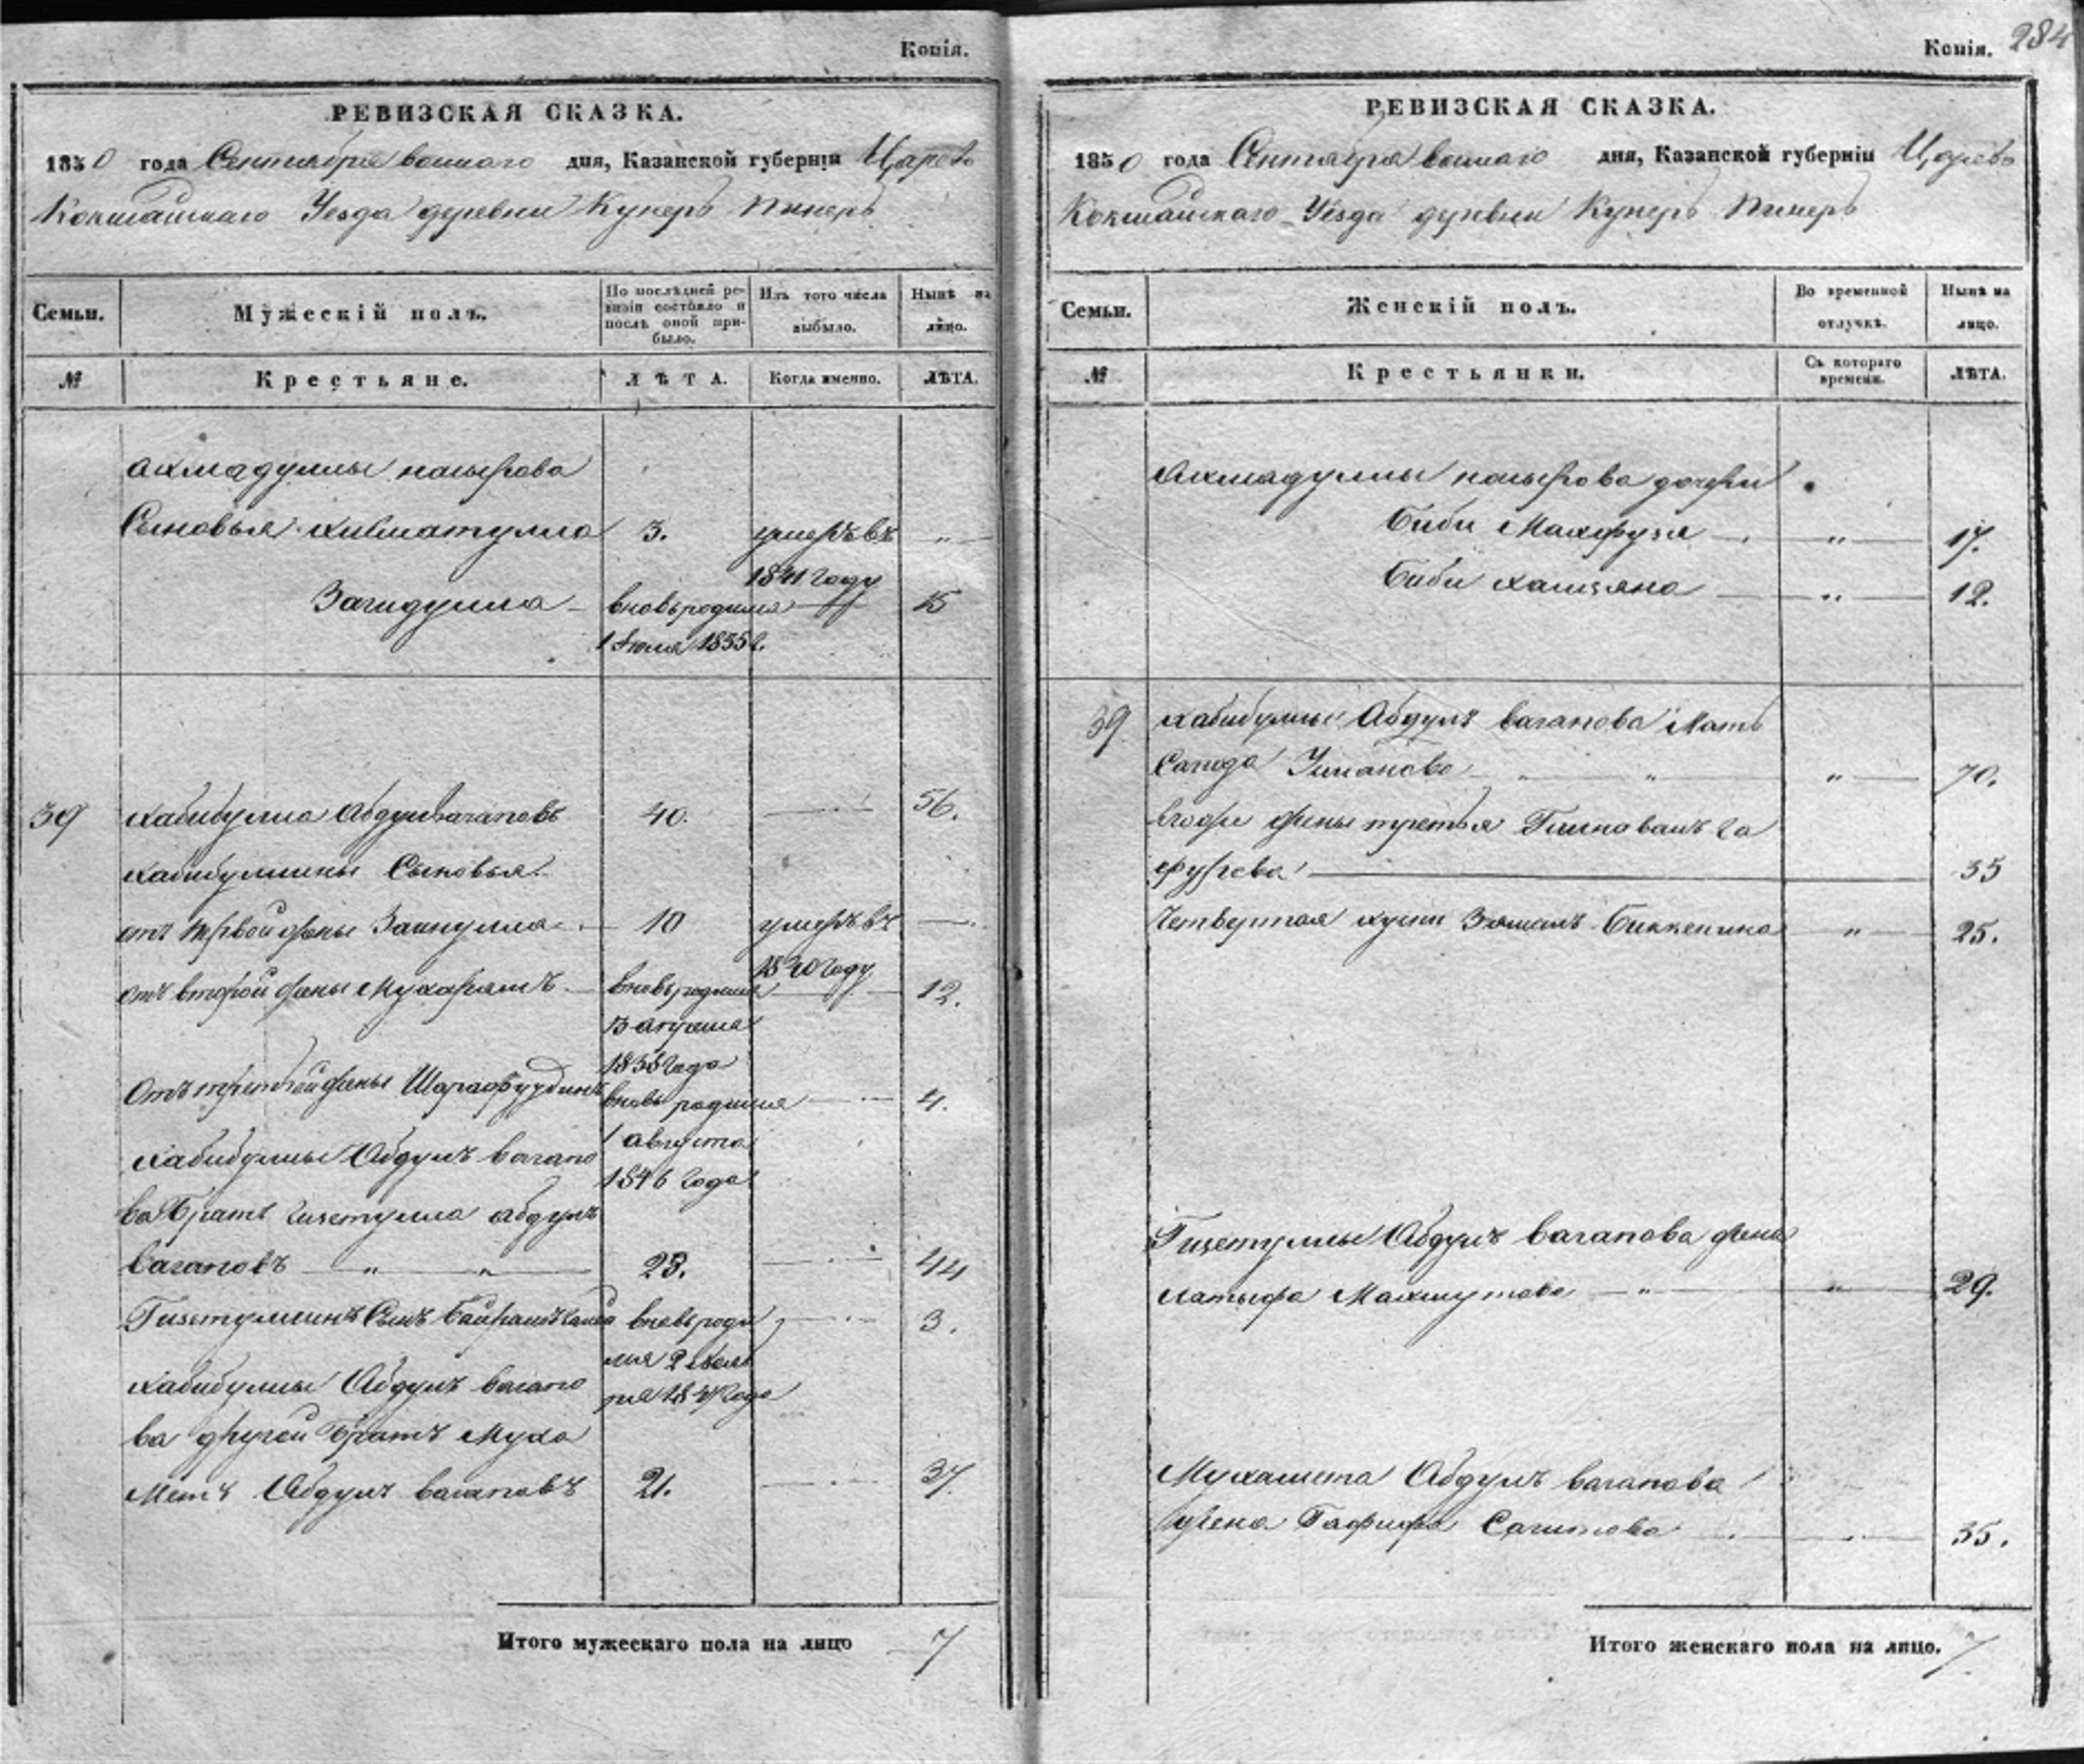 Копія.
РЕВИЗСКАЯ СКАЗКА.
1850 года Сентября восмаго дня, Казанской губерніи Царево
Кокшайскаго Уезда деревни Куперъ Пинеръ
Семьи.
Мужескій полъ.
По послѣдней ре-
визіи состояло и
послѣ оной при-
было.
Изъ того числа
выбыло.
Нынѣ на
лицо.
№
Крестьяне.
ЛѢТА.
Когда именно.
ЛѢТА.
Ахмадуллы
Сыновья Хикматулла 3. умеръ въ „
1841 году
Загидулла вновь родился 15
1 Июля 1835 г.
39 Хабибулла Абдулвагаповъ 40. 56.
Хабибуллины Сыновья
отъ первой жены Зайнулла 10 умеръ въ
1840 году
отъ второй жены Мухарямъ вновь родился 12.
1838 года
Отъ третьей жены Шарафуудинъ вновь родился 4.
1 августа
1846 года
Хабибуллы Абдулъ вагапо
ва братъ Гизетулла абдулъ
вагаповъ „ „ 23. 44
Гизетуллинъ Сынъ вновь роди 3.
лся 2
1847 года
Хабибуллы Абдулъ вагапо
ва другой братъ Муха
метъ Абдулъ вагаповъ 21. 37
Итого мужескаго пола на лицо 7
Копія. 284
РЕВИЗСКАЯ СКАЗКА.
1850 года Сентября восмаго дня, Казанской губерніи Царево
Кокшайскаго Уезда деревни Куперъ Пинеръ
Семьи.
Женскій полъ.
Во временной
отлучкѣ.
Нынѣ на
лицо.
№
Крестьянки.
Съ котораго
времени.
ЛѢТА.
Ахмадуллы дочери
Биби Махфузя „ 17.
Биби Хамзяна „ 12.
39 Хабибуллы Абдулъ вагапова Мать
Сагида Уманова „ „ „ 70.
его жены третья
35
Четвертая Биккенина „ 25.
Гизетуллы Абдулъ вагапова жена
Латыфа Махмутова „ „ 29.
Мухамета Абдулъ вагапова
жена Гафифа Сагитова 35.
Итого женскаго пола на лицо. 7